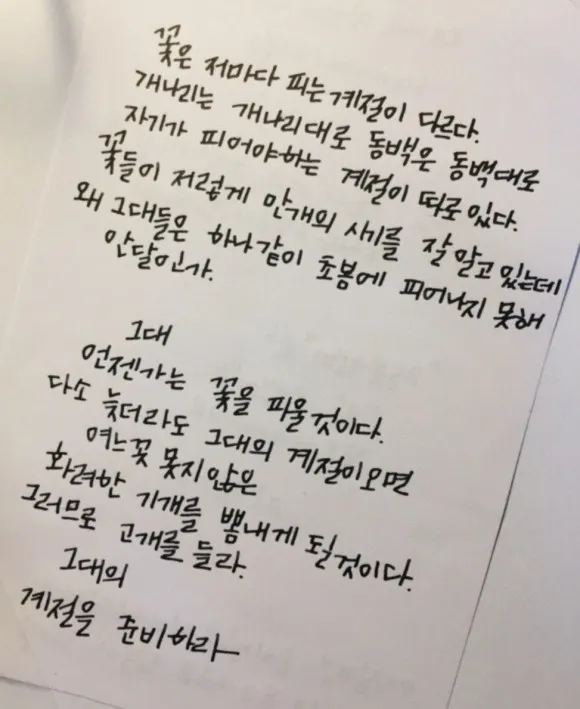 꽃은 저마다 피는 계절이 다르다.
개나리는 개나리대로 동백은 동백대로
자기가 피어야하는 계절이 따로 있다.
꽃들이 저렇게 만개의 시기를 잘 알고 있는데
왜 그대들은 하나같이 초봄에 피어나지 못해
안달인가.
그대
언젠가는 꽃을 피울것이다.
다소 늦더라도 그대의 계절이오면
여느꽃 못지않은
화려한 기개를 뽐내게 될것이다.
그러므로 고개를 들라.
그대의
계절을 준비하라